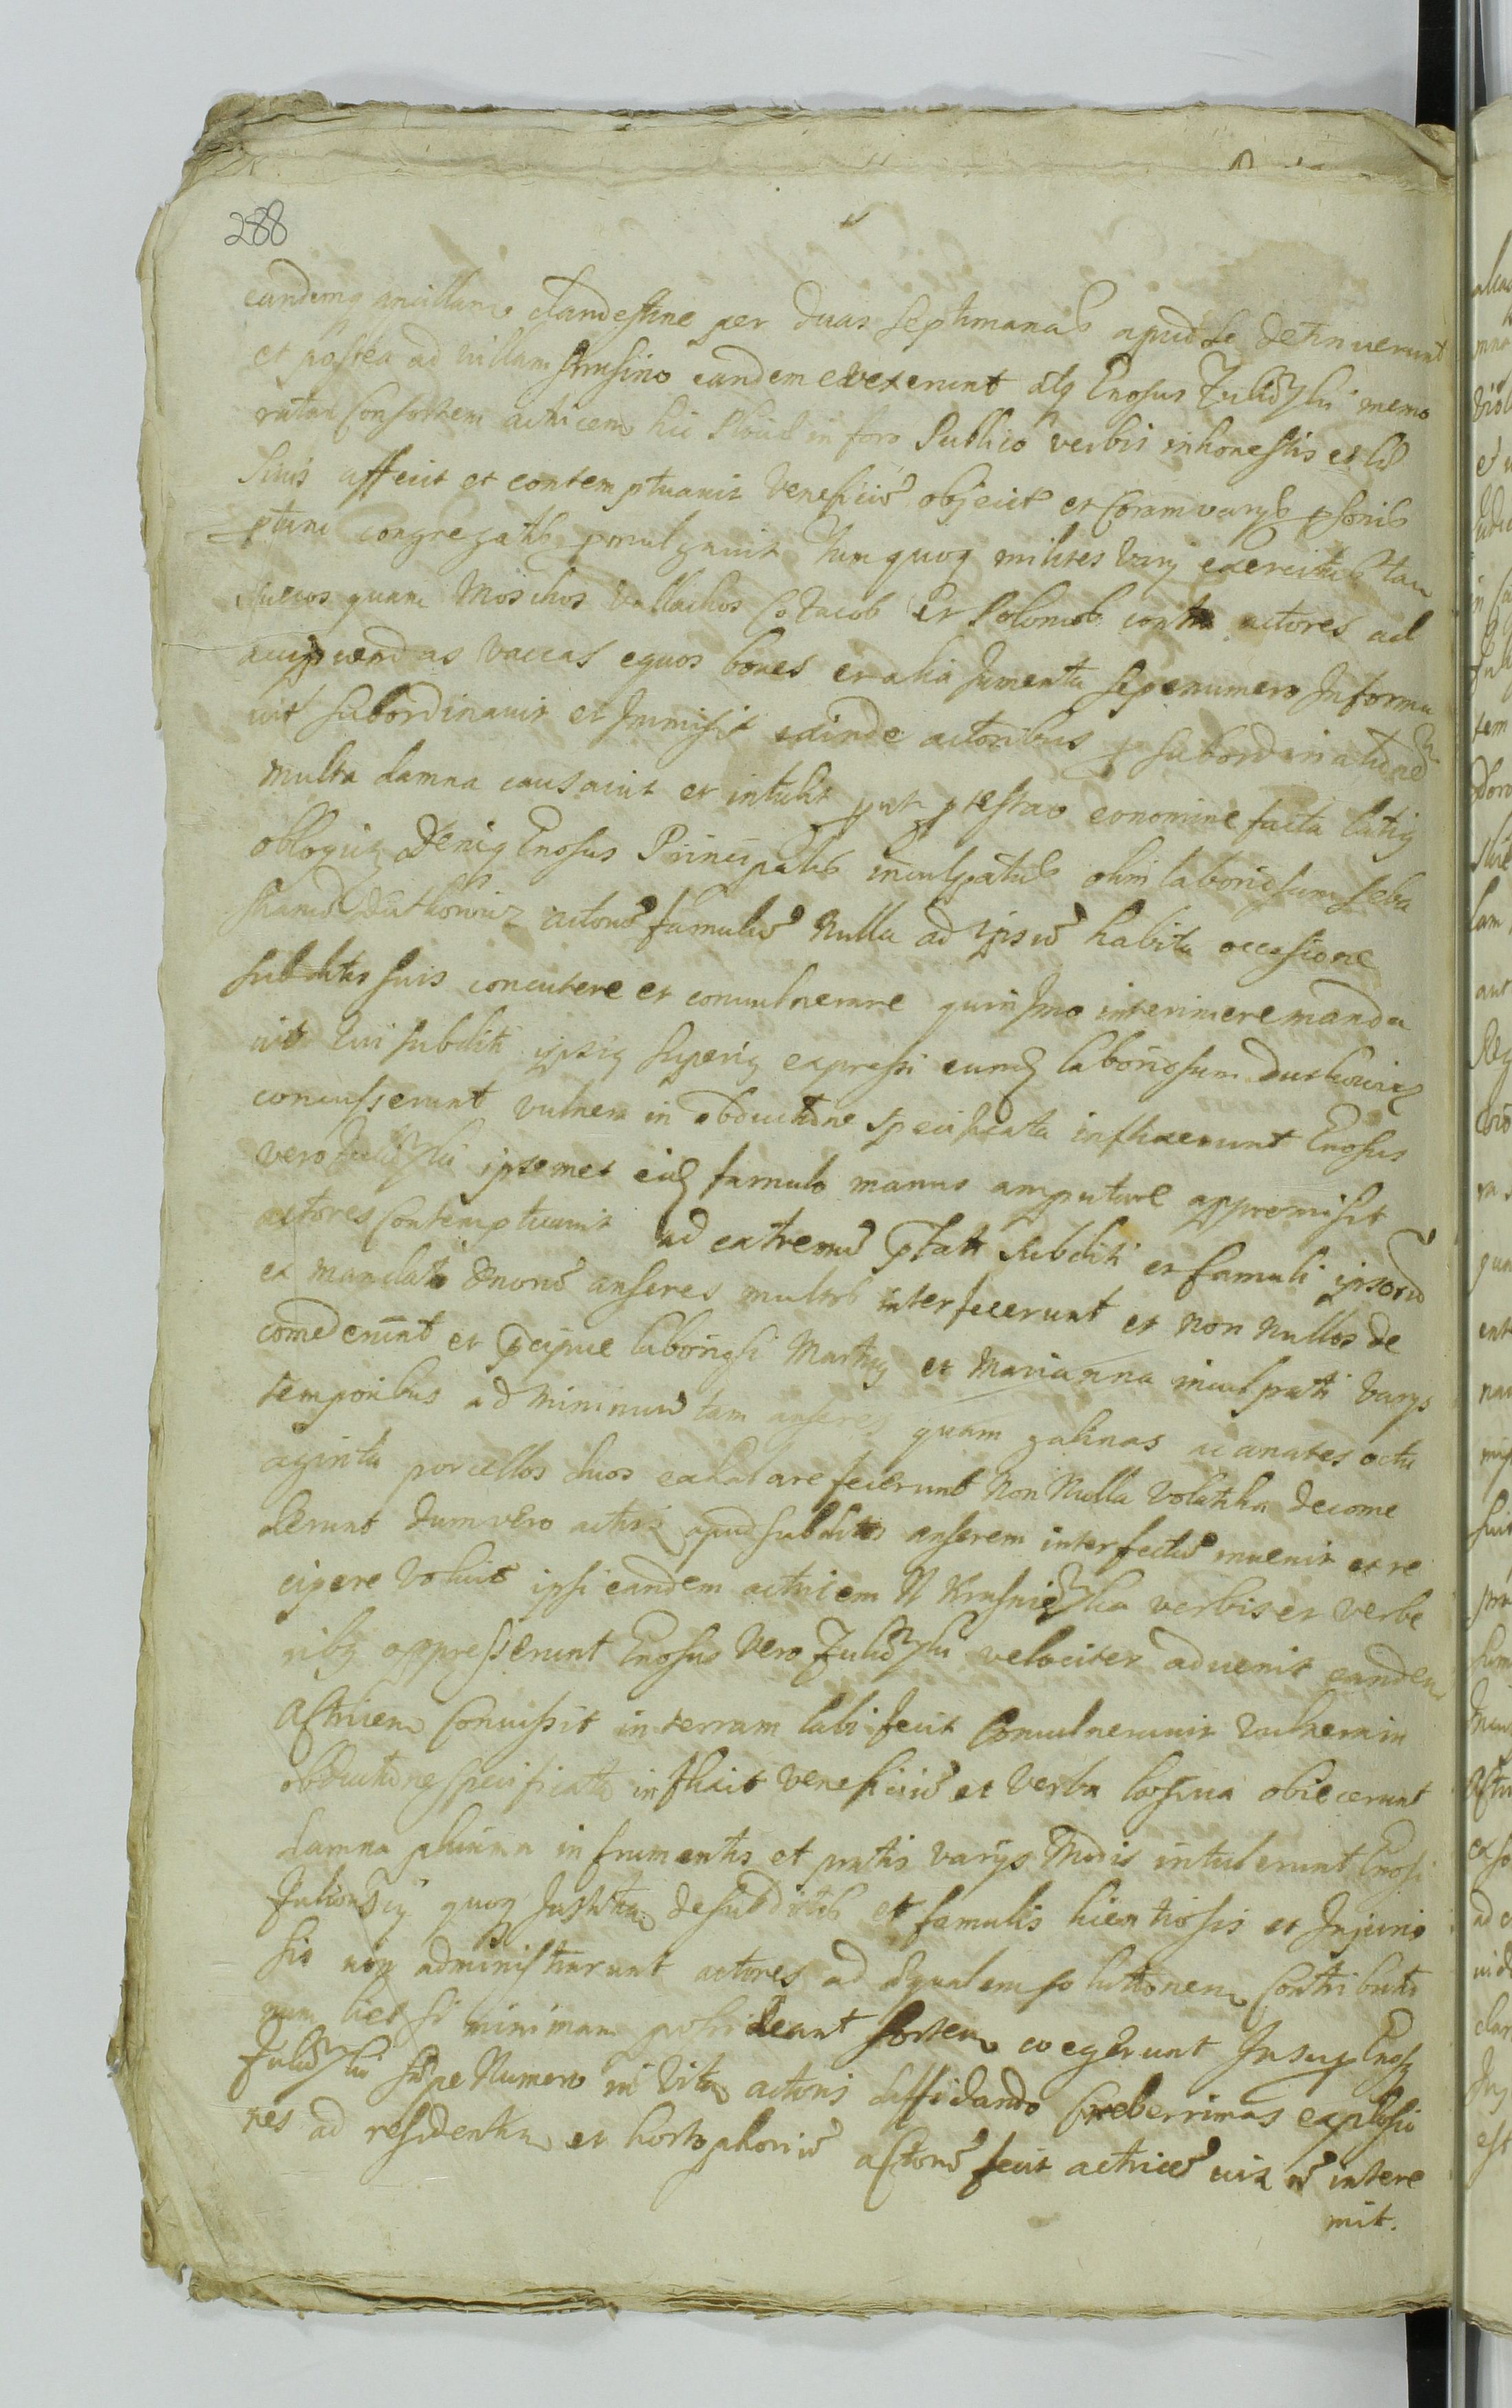 288
eandemq ancillam clandestine per duas septimanas apud se detinuerunt
et postea ad villam Krusino eandem evexerunt atq Gnosus Juliowski memo
ratam Consortem actricem hic Plociae in foro Publico verbis inhonestis et
suis affecit et contemptuavit veneficium objecit et Coram varys psonis
ptunc congregatis promulgavit Tum quoq milites vary exercitus tam
suecos quam Moschos Vallachos Cozacos et Polonos contra actores ad
accipiendas vaccas equos boves et alia Jumenta sepenumero Informa
vit subordinavit et Immisit exinde actoribus p subordinationem
multa damna causavit et intulit put ptestao eonomine facta latiq
obloquit Deniq Gnosus Principalis inculpatus olim laboriosum Seba
stianum Dutkowicz actorum famulum Nulla ad ipsum habita occasione
subditis suis concutere et convulnerare quin Imo interimere manda
vit Qui subditi ipsiq superiq expressi eund laboriosum Dutkowicz
concusserunt vulnera in obductione specificata inflixerunt Gnosus
vero Juliowski ipsemet eid famulo manus amputare appromisit
actores Contemptuavit ad extremum ptati subditi et famuli ipsorum
ex mandato Dnorum anseres multos interfecerunt et non nullos de
comederunt et pcipue laboriosi Martinq et Marianna inculpati varys
temporibus ad minimum tam anseres quam galinas ac anates octu
aginta porcellos duos exhalare fecerunt Non Nulla volatilia decome
derunt Dum vero actrix apud subditos anserem interfectum invenit et re
cipere voluit ipsi eandem actricem N Krusniewska verbis et verbe
ribq oppresserunt Gnosus Vero Juliowski velociter advenit eandem
Actricem Concussit in terram labi fecit Convulneravit vulnera in
obductione specificata inflixit veneficium et verba lasciva obiecerunt
damna plurima in frumentis et pratis varys Modis intulerunt Gnosi
Juliowscy quoq Justitiam de subditis et famulis licentiosis et Injurio
sis non administrarunt actores ad equalem solutionem Contributio
num licet si minimam possideant sortem coegerunt Insup Gnosq
Juliowski sepe Numero in vitam actoris diffidando Creberrimas explosio
nes ad residentiam et horto actorum fecit actricem vix non intere
mit.